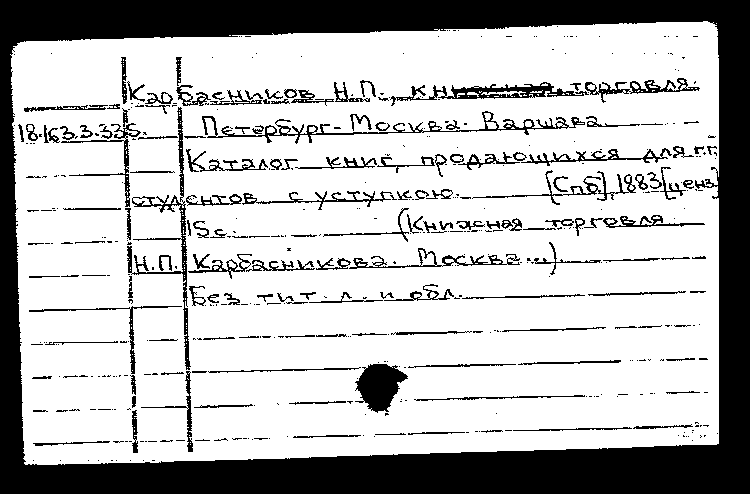 Карбасников, Н.П., книжная торговля.
18.163.3.335. Петербург-Москва-Варшава.
Каталог книг, продающихся для г.г.
студентов с уступкою. [Спб], 1883 [ценз]
15с. (Книжная торговля
Н.П. Карбасникова. Москва...).
Без тит. л. и обл.